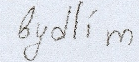 bydlím